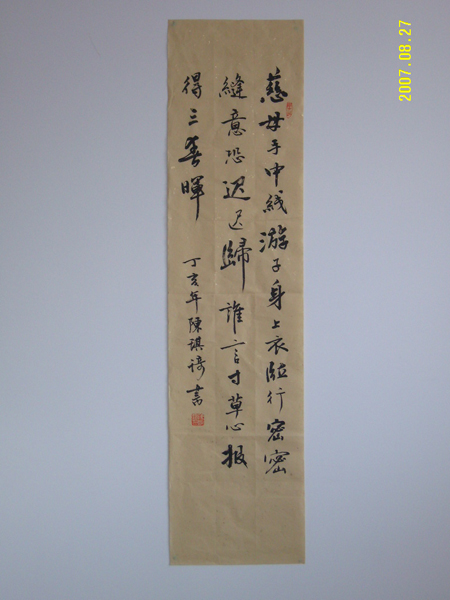 慈母手中綫游子身上衣临行密密
縫意恐迟迟歸誰言寸草心报
得三春暉
丁亥年陳琪書
2007.08.27